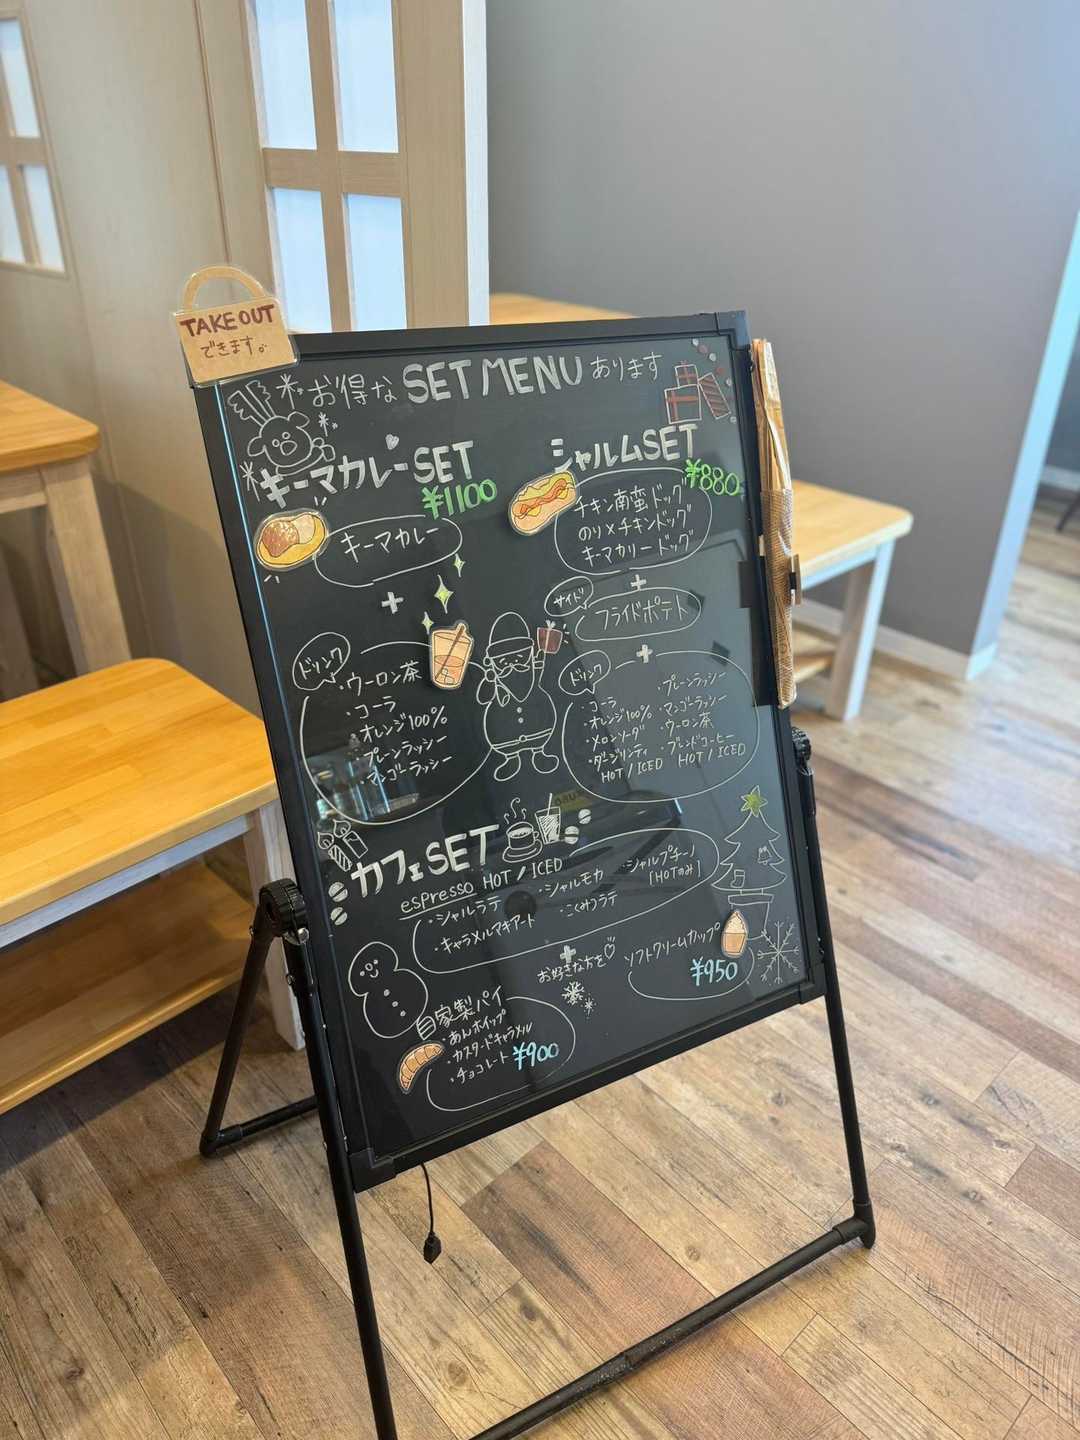 TAKE OUT
できます。
お得な SET MENU あります
キーマカレーSET
¥1100
キーマカレー
+
ドリンク
・ウーロン茶
・コーラ
・オレンジ100%
・プレーンラッシー
・マンゴーラッシー
シャルムSET
¥880
チキン南蛮ドッグ
のり×チキンドッグ
キーマカリードッグ
+
サイド
フライドポテト
+
ドリンク
・コーラ
・オレンジ100%
・メロンソーダ
・ダージリンティ
HOT / ICED
・プレーンラッシー
・マンゴーラッシー
・ウーロン茶
・ブレンドコーヒー
HOT / ICED
カフェSET
espresso HOT / ICED
・シャルラテ
・キャラメルマキアート
・シャルモカ
・こくみつラテ
・シャルプチーノ
[HOTのみ]
+
お好きな方を♡
自家製パイ
・あんホイップ
・カスタードキャラメル
・チョコレート ¥900
ソフトクリームカップ
¥950